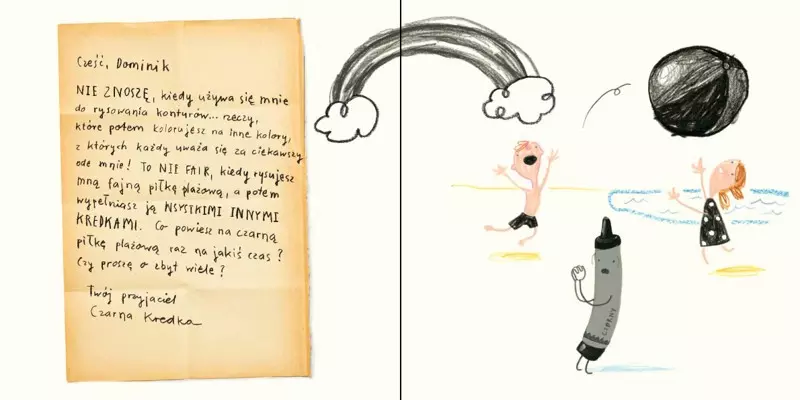 Cześć, Dominik
NIE ZNOSZĘ, kiedy używa się mnie
do rysowania konturów... rzeczy,
które potem kolorujesz na inne kolory,
z których każdy uważa się za ciekawszy
ode mnie! TO NIE FAIR, kiedy rysujesz
mną fajną piłkę plażową, a potem
wypełniasz ją WSYSTKIMI INNYMI
KREDKAMI. Co powiesz na czarną
piłkę plażową raz na jakiś czas?
Czy proszę o zbyt wiele?
Twój przyjaciel
Czarna Kredka
CZARNY